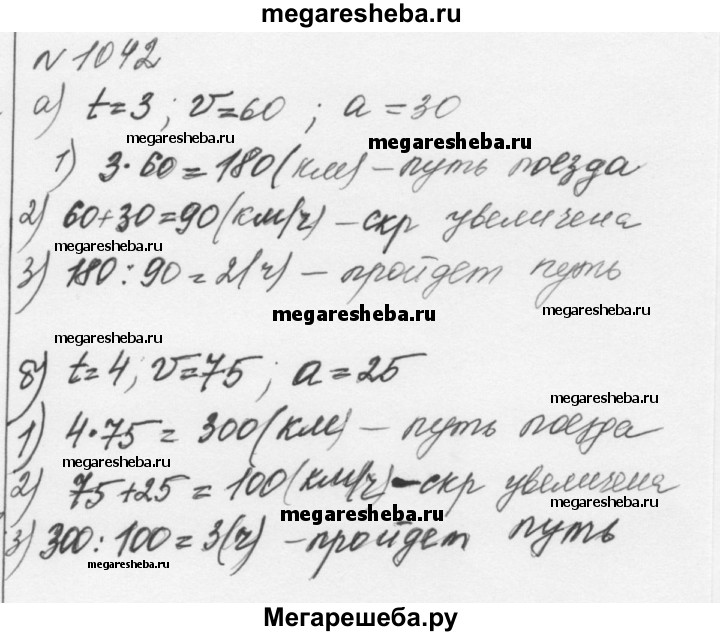 megaresheba.ru
№ 1042
а) t=3; v=60; a=30
megaresheba.ru
megaresheba.ru
1) 3·60=180(км) – путь поезда
2) 60+30=90(км/ч) – скр увеличена
megaresheba.ru
3) 180:90=2(ч) – пройдет путь
megaresheba.ru
megaresheba.ru
megaresheba.ru
б) t=4; v=75; a=25
megaresheba.ru
1) 4·75=300(км) – путь поезда
megaresheba.ru
2) 75+25=100(км/ч) – скр увеличена
megaresheba.ru
megaresheba.ru
3) 300:100=3(ч) – пройдет путь
megaresheba.ru
Мегарешеба.ру